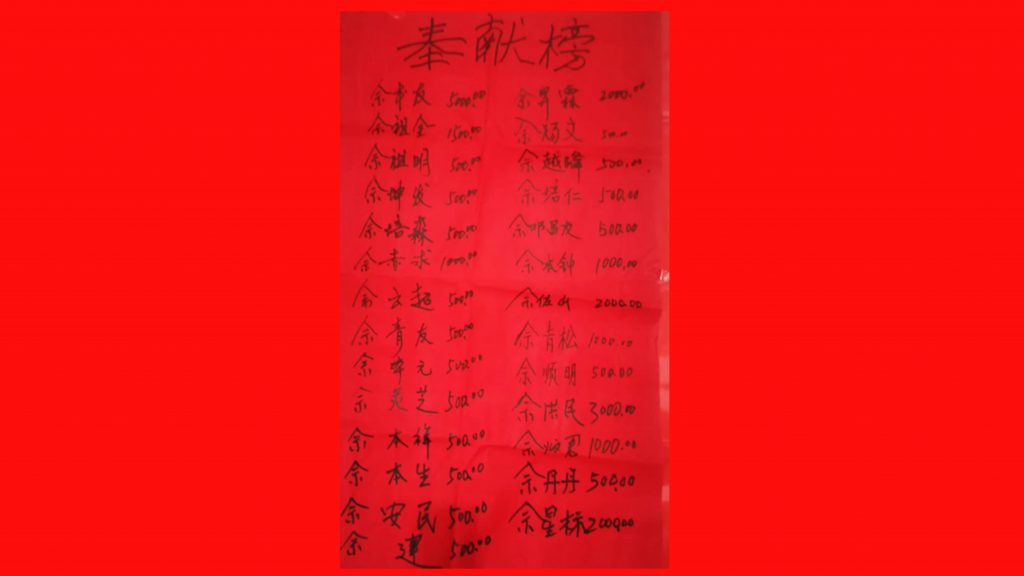 奉献榜
余本友 5000.00
余祖全 1500.00
余祖明 500.00
余坤发 500.00
余培森 500.00
余 求 1000.00
余云超 500.00
余青友 500.00
余 元 500.00
余灵芝 500.00
余本祥 500.00
余本生 500.00
余安民 500.00
余建 500.00
余昇霖 2000.00
余炀文
余越峰 500.00
余培仁 500.00
余邓昌友 500.00
余 钟 1000.00
余佐山 2000.00
余青松 1000.00
余顺明 500.00
余洪民 3000.00
余顺 1000.00
余丹丹 500.00
余星标 2000.00